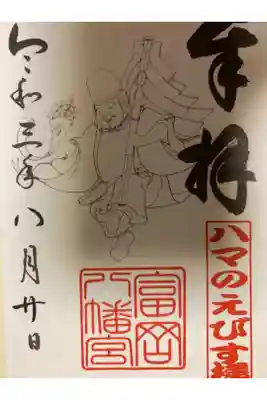 奉拝
ハマの元えびす様
富岡
八幡宮
令和三年八月廿日